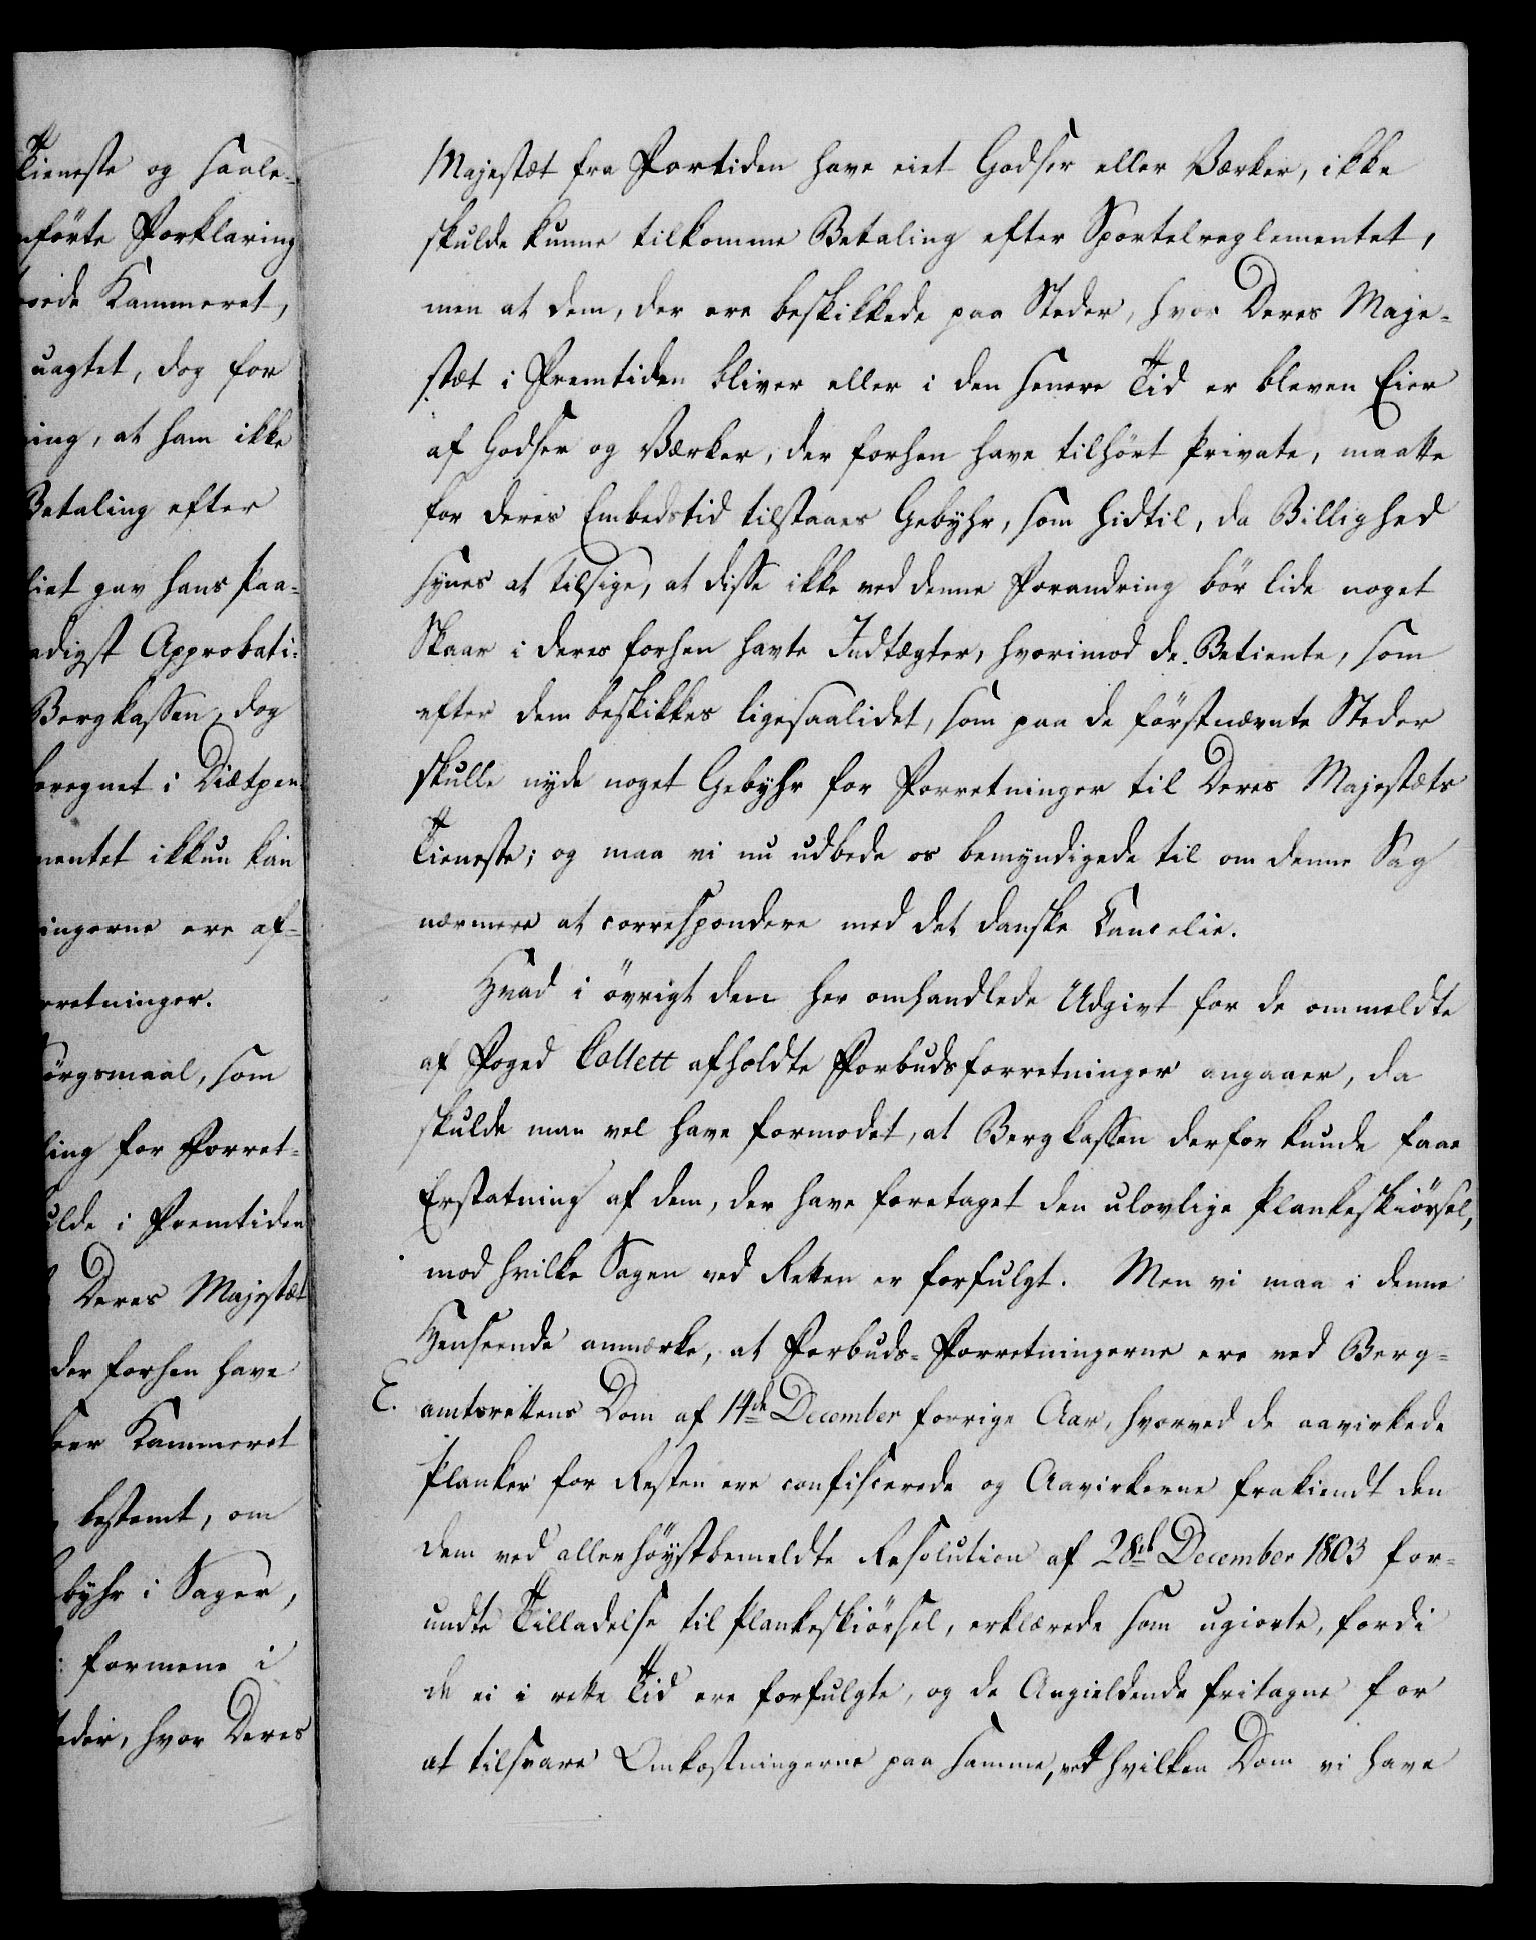 Tieneste og saale-
nförte Forklaring
Kammeret,
uagtet, dog for
ing, at ham ikke
Betaling efter
gav hans paa-
adigst Approbati-
Bergkassen, dog
beregnet i Diætpen
mentet ikkun kan
ingerne ere af-
rretninger.
örgsmaal, som
ling for Forret-
ulde i Fremtiden
Deres Majestæt
der forhen have
Kammeret
bestemt, om
byhr i Sager,
formene i
eder, hvor Deres
Majestæt fra Fortiden have eiet Godser eller Værker, ikke
skulde kunne tilkomme Betaling efter Sportelreglementet,
men at dem, der ere beskikkede paa Steder, hvor Deres Maje-
stæt i Fremtiden bliver eller i den senere Tid er bleven Eier
af Godser og Værker, der forhen have tilhört Private, maatte
for deres Embedstid tilstaaes Gebyhr, som hidtil, da Billighed
synes at tilsige, at disse ikke ved denne Forandring bör lide noget
Skaar i deres forhen havte Indtægter, hvorimod de Betiente, som
efter dem beskikkes ligesaalidet, som paa de förstnævnte Steder
skulle nyde noget Gebyhr for Forretninger til Deres Majestæts
Tieneste; og maa vi nu udbede os bemyndigede til om denne Sag
nærmere at correspondere med det danske Cancelie.
Hvad i övrigt den her omhandlede Udgivt for de ommeldte
af Foged Collett afholdte Forbudsforretninger angaaer, da
skulde man vel have formodet, at Bergkassen derfor kunde faae
Erstatning af dem, der have foretaget den ulovlige Plankeskiörsel,
mod hvilke Sagen ved Retten er forfulgt. Men vi maa i denne
Henseende anmærke, at Forbuds-Forretningerne ere ved Berg-
E. amtsrettens Dom af 14de December forrige Aar, hvorved de aavirkede
Planker for Resten ere confiscerede og Aavirkerne frakiendt den
dem ved allerhöystbemeldte Resolution af 28de December 1803 for-
undte Tilladelse til Plankeskiörsel, erklærede som ugiorte, fordi
de ei i rette Tid ere forfulgte, og de Angieldende fritagne for
at tilsvare Omkostningerne paa samme, ved hvilken Dom vi have